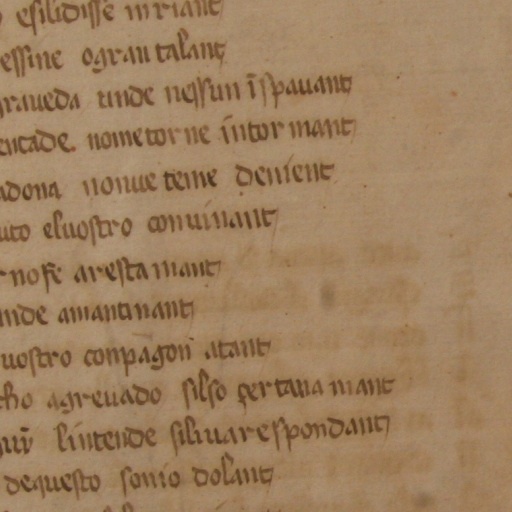 esilidisse inriant
essine ogran talant
graveda unde nessun īspavant
entade nome torne īntormant
adona nonve teme denient
uto elvostro convinant
nose arestamant
unde amantinant
vostro conpagon atant
cho agrevado silso per tana mant
lintende silivarespondant
dequesto sonio dolant